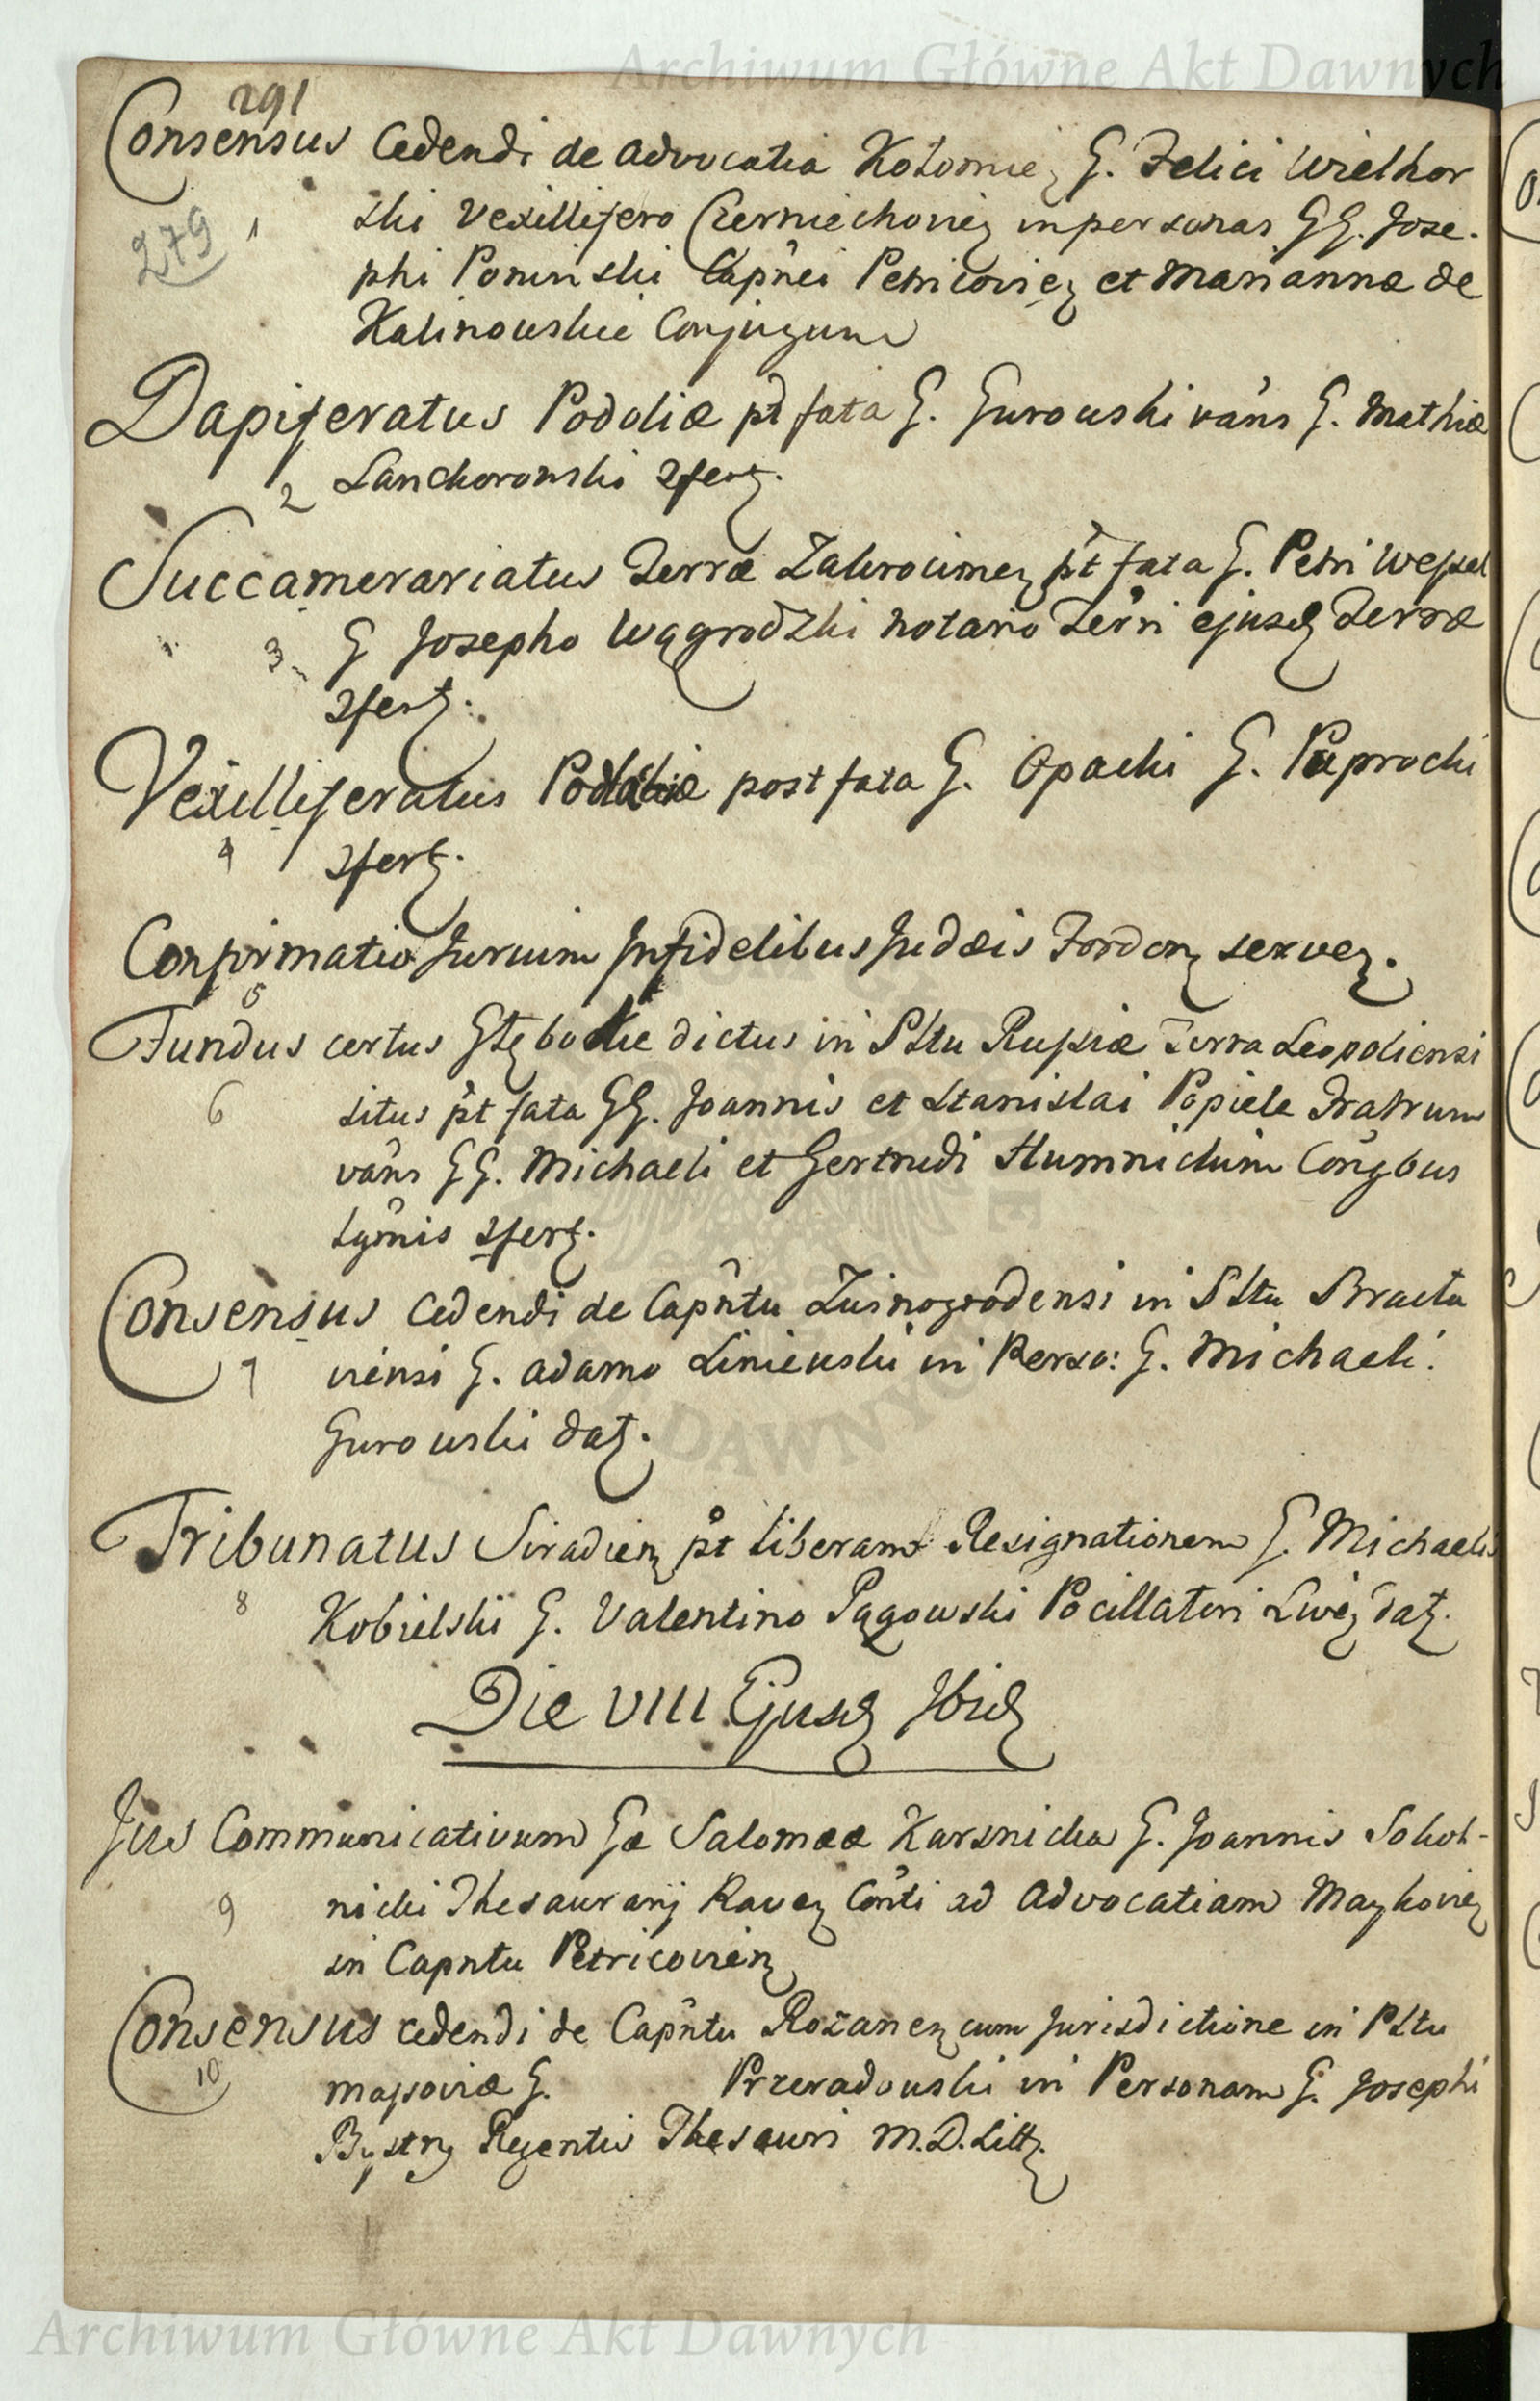 Archiwum Główne Akt Dawnych
291
Consensus Cedendi de Advocatia Kołomien G. Felici Wielhor
279 1 ski Vexillifero Czerniechovien in personas GG. Jose-
phi Poninski Capnei Petricovien et Mariannæ de
Kalinowskie Conjugum
Dapiferatus Podoliæ pt fata G. Gurowski vans G. Mathiæ
2 Lanckoronski 2fert.
Succamerariatus Terræ Zakrocimen pt fata G. Petri Wessel
3 G Josepho Wągrodzki Notario Terri ejusd Terræ
2fert.
Vexilliferatus Podlachiæ post fata G. Opacki G. Paprocki
4 2fert.
Confirmatio Jurium Infidelibus Judæis Fordon serven.
5
Fundus certus Głębokie dictus in Pltu Russiæ Terra Leopoliensi
6 situs pt fata GG. Joannis et Stanislai Popiele Fratrum
vans GG. Michaeli et Gertrudi Humnickim Congbus
Lgmis 2fert.
Consensus Cedendi de Capntu Zwinogrodensi in Pltu Bracla
7 viensi G. Adamo Liniewski in Perso: G. Michaeli.
Gurowski dat.
Tribunatus Siradien pt liberam Resignationem G. Michaelis
8 Kobielskii G. Valentino Pągowski Pocillatori Liven dat.
Die VIII Ejusd Ibid
Jus Communicativum Gæ Salomeæ Karsnicka G. Joannis Sokol-
9 nicki Thesaurarij Raven Conti ad Advocatiam Maykovien
in Capntu Petricovien
Consensus cedendi de Capntu Rozanen cum Jurisdictione in Pltu
10 Massoviæ G. Przeradowski in Personam G. Josephi
Bystry Regentis Thesauri M.D.Litt.
Archiwum Główne Akt Dawnych